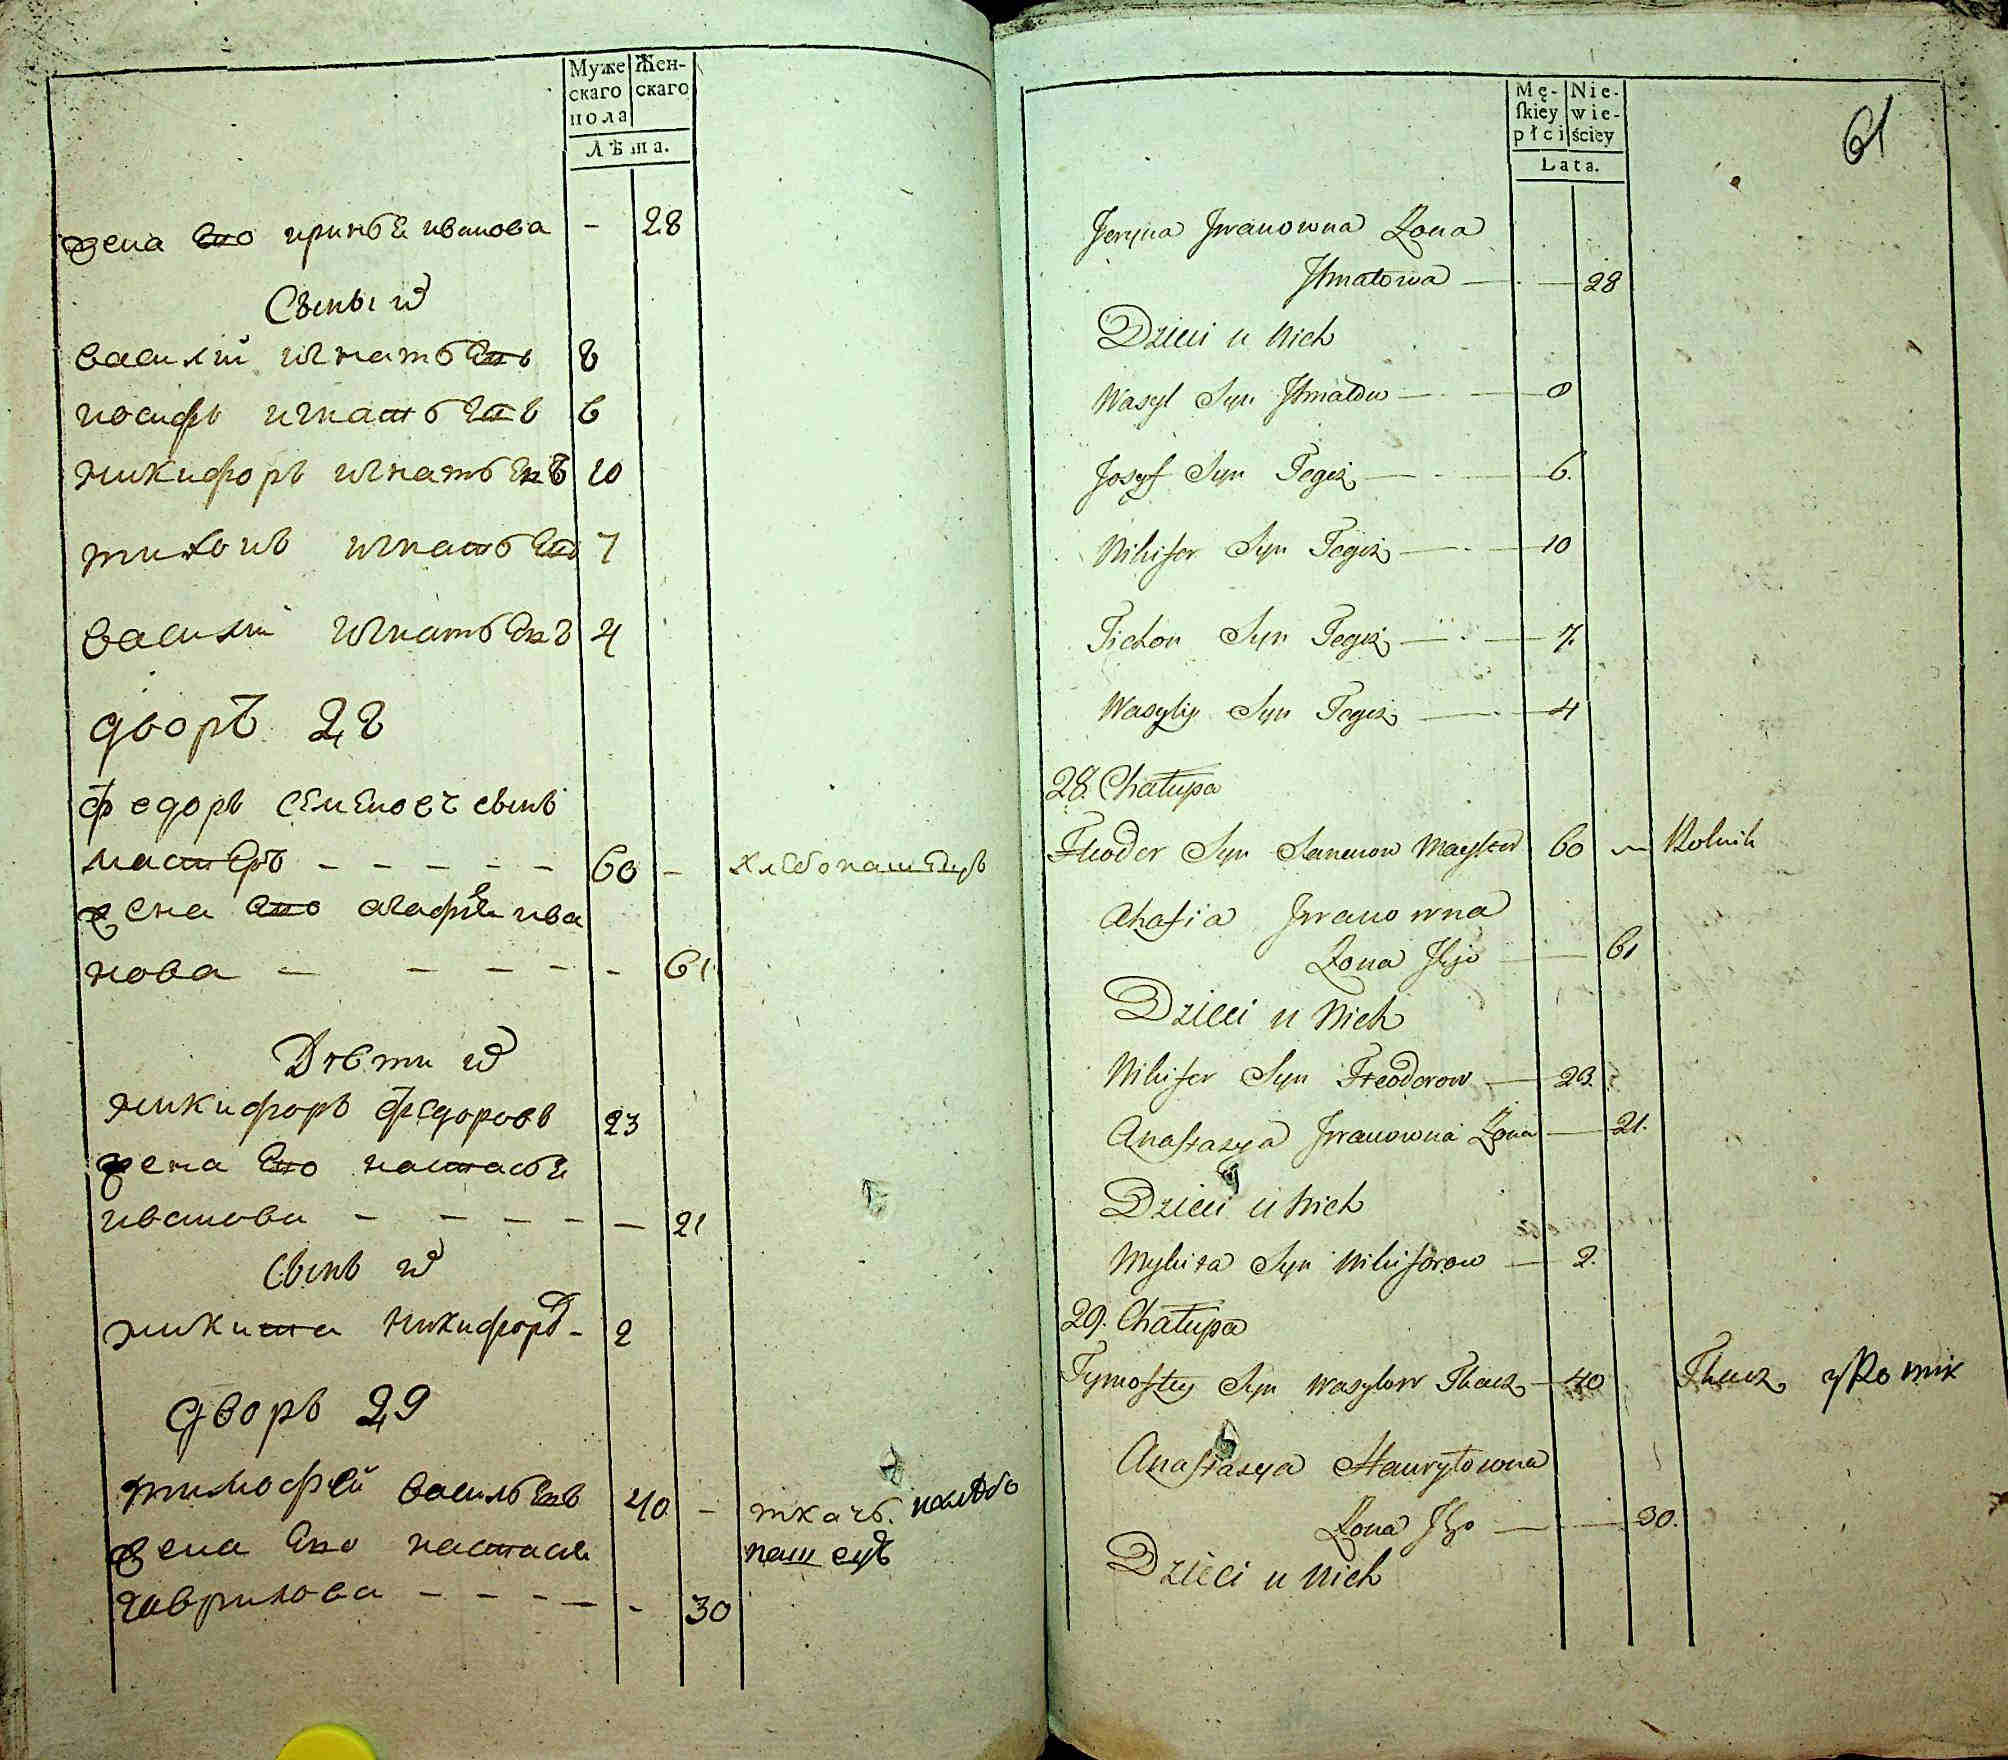 Муже
скаго
пола
Жен-
скаго
Лѣта.
жена его ириньѧ иванова - 28
Сыны их
василий игнатьевъ 8
иосифъ игнатьевъ 6
никифоръ игнатьевъ 10
тихонъ игнатьевъ 7
василий игнатьевъ 4
дворъ 28
Федоръ семеновъ сынъ
мастеръ - - - - - 60 - хлебопашецъ
жена его агафиѧ ива
нова - - - - - - 61
Дѣти их
никифоръ федоровъ 23
жена его настасьѧ
иванова - - - - - 21
Сынъ их
никита никифоров - 2
дворъ 29
тимофей васильевъ 40 - ткачъ. и хлебо
жена его настасьѧ пашецъ
гаврилова - - - - - 30
Mę-
skiey
płci
Nie-
wie-
ściey
Lata.
61
Jeryna Jwanowna Zona
Jhnatowa — 28
Dzieci u Nich
Wasyl Syn Jhnatow — 8
Josyf Syn Tegoż — 6.
Nikifor Syn Tegoż — 10
Tichon Syn Tegoż — 7.
Wasyliy Syn Tegoż — 4
28. Chałupa
Fteodor Syn Semenow Mayster 60 — Rolnik
Ahafia Jwanowna
Zona Jego — 61
Dzieci u Nich
Nikifor Syn Fteodorow — 23.
Anastazya Jwanowna Zona — 21.
Dzieci u Nich
Mykita Syn Nikiforow — 2.
29. Chałupa
Tymoftey Syn Wasylow Tkacz — 40 Tkacz y Rolnik
Anastazya Hawryłowna
Zona Jego — 30.
Dzieci u Nich